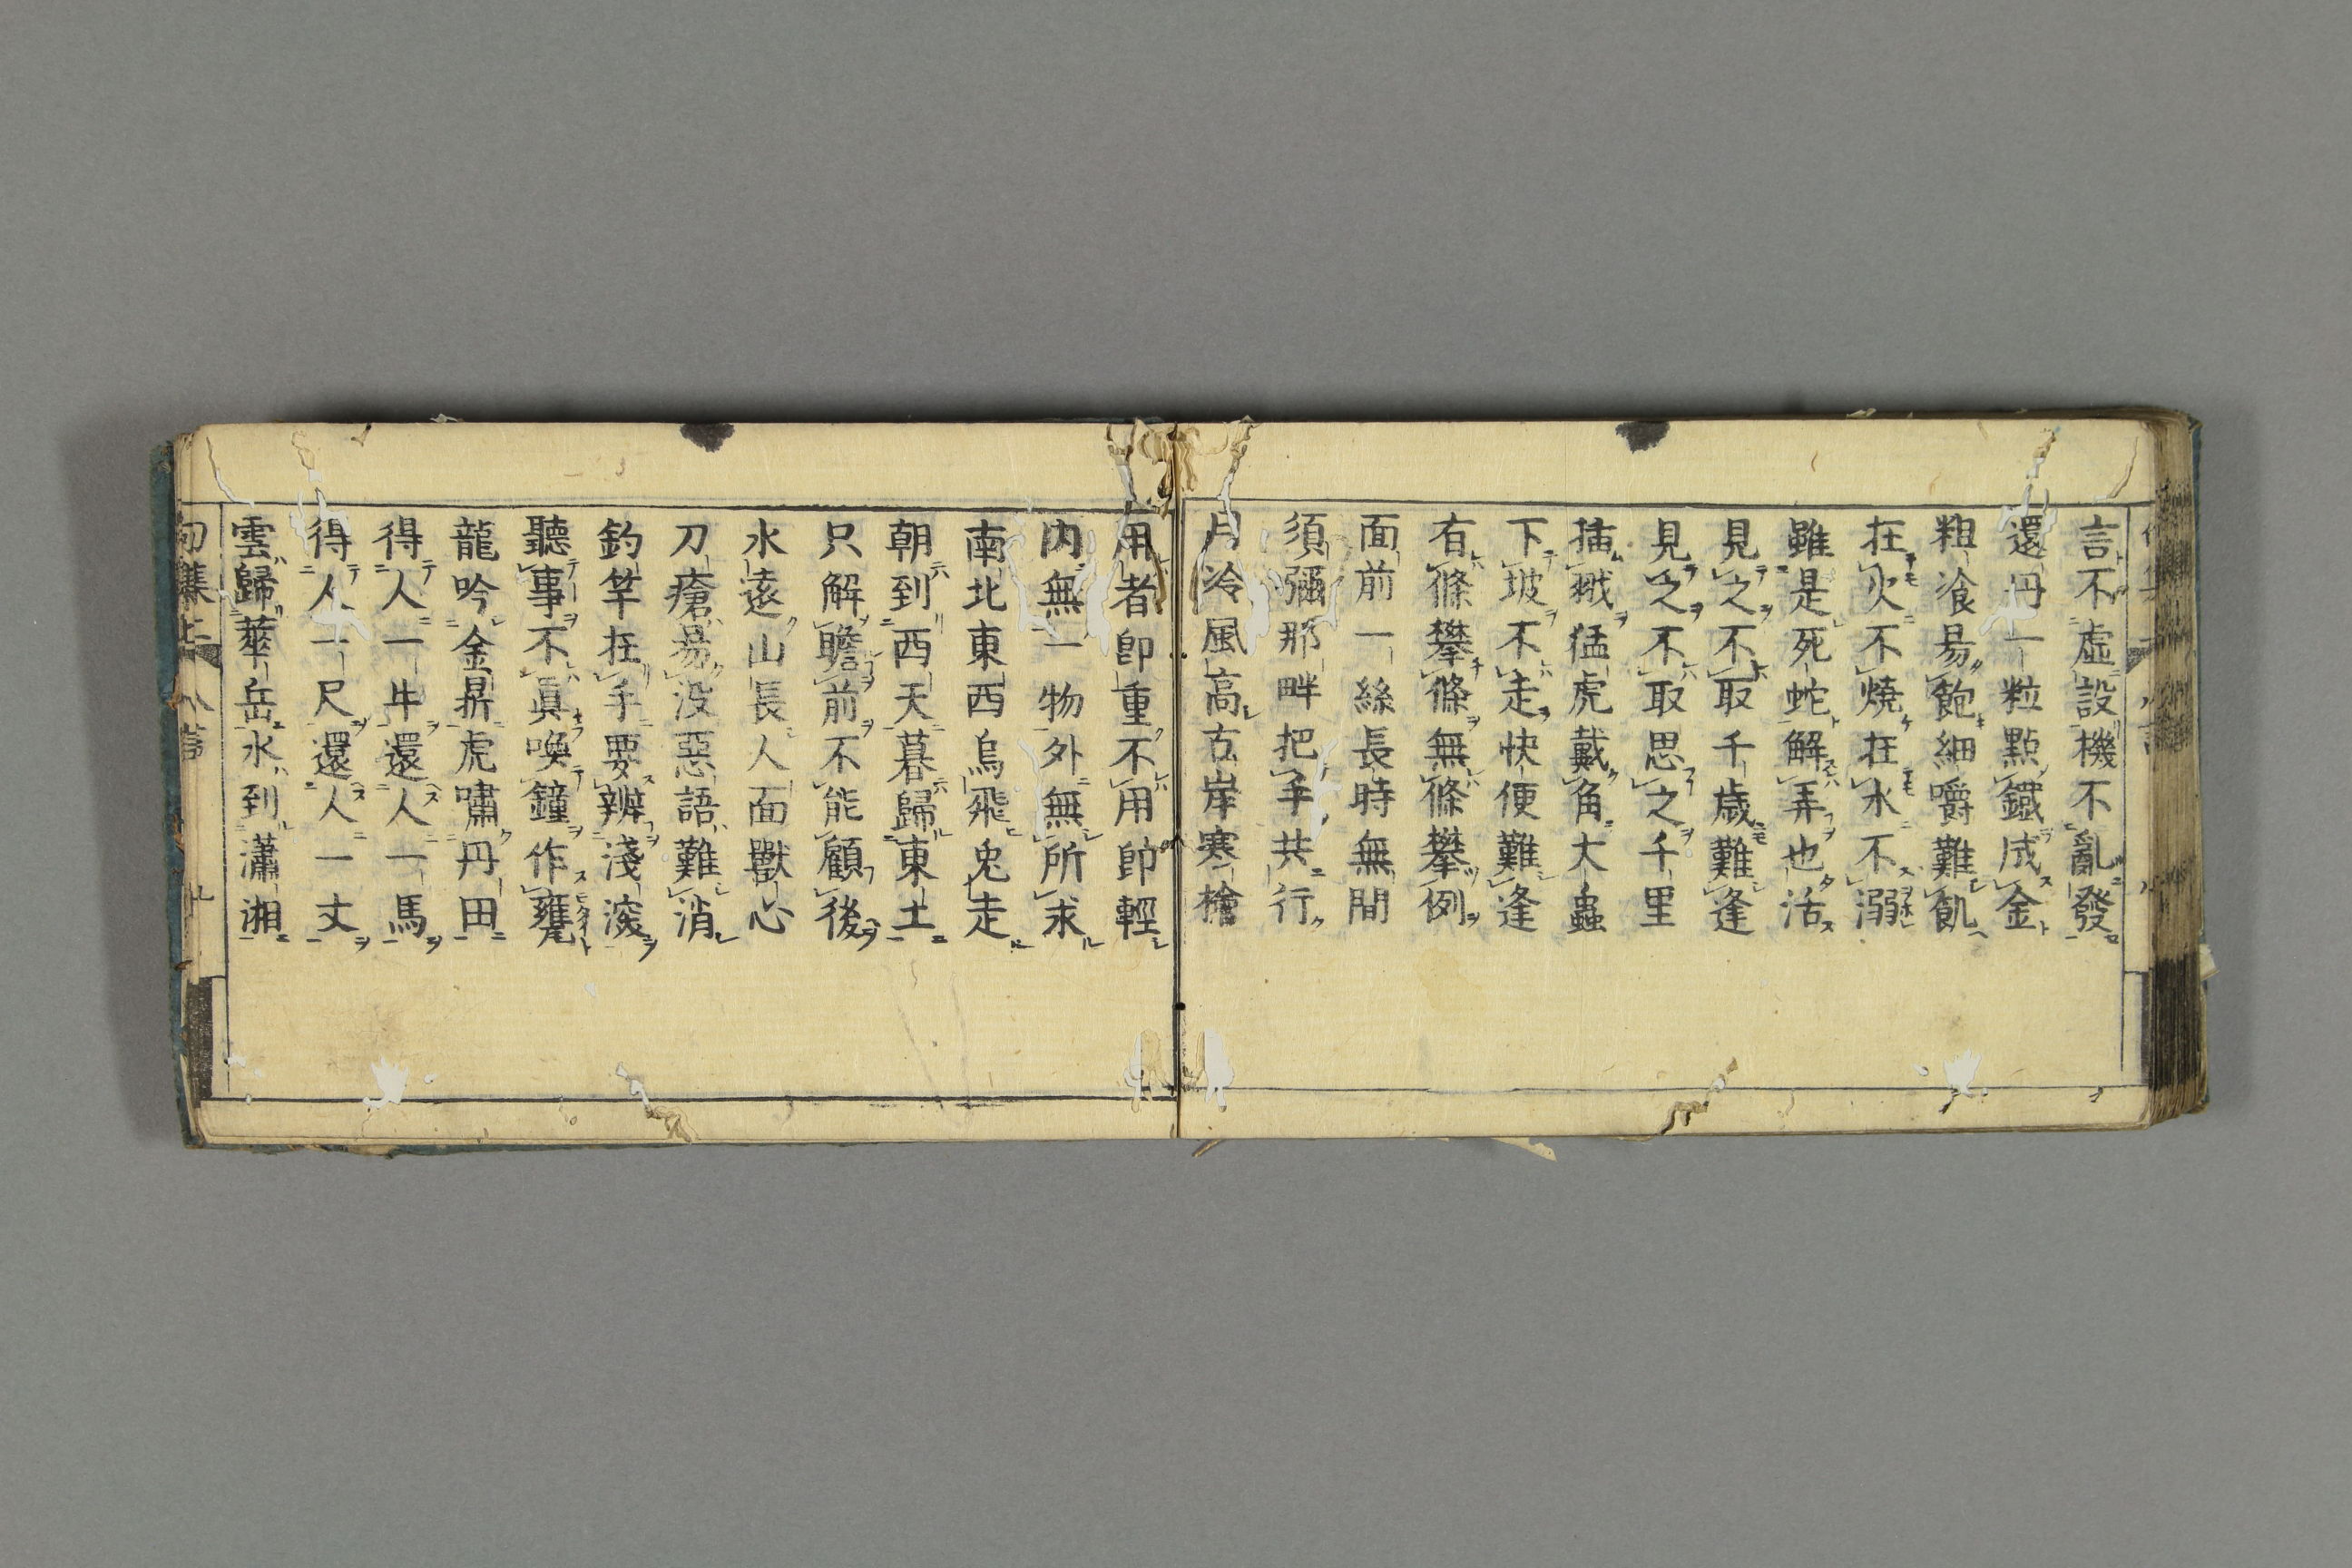 言不虛設機不亂發
還丹一粒點鐵成金
粗飡易飽細嚼難飢
在火不燒在水不溺
雖是死蛇解弄也活
見之不取千歳難逢
見之不取思之千里
插翄猛虎戴角大蟲
下坡不走快便難逢
有條攀條無條攀例
面前一絲長時無間
須彌那畔把手共行
月冷風高古岸寒檜
用者卽重不用卽輕
内無一物外無所求
南北東西烏飛兔走
朝到西天暮歸東土
只解瞻前不能顧後
水遠山長人面獸心
刀瘡易没惡語難消
釣竿在手要辨淺深
聽事不眞喚鐘作甕
龍吟金鼎虎嘯丹田
得人一牛還人一馬
得人一尺還人一丈
雲歸華岳水到瀟湘
句集上 八言